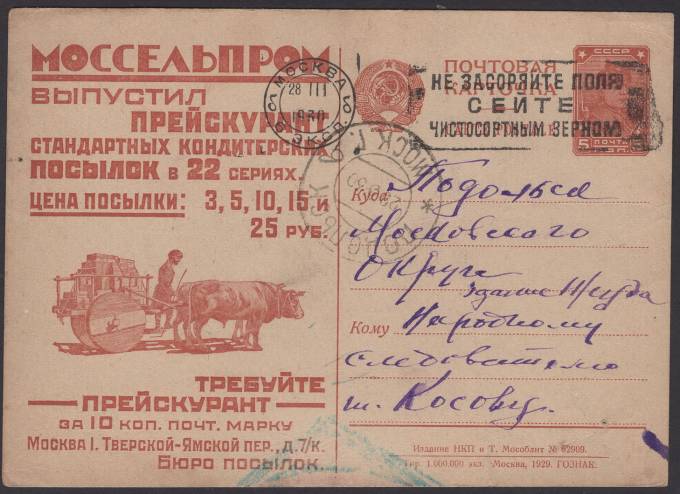 МОССЕЛЬПРОМ
ВЫПУСТИЛ
ПРЕЙСКУРАНТ
СТАНДАРТНЫХ КОНДИТЕРСКИХ
ПОСЫЛОК В 22 СЕРИЯХ.
ЦЕНА ПОСЫЛКИ: 3, 5, 10, 15 и
25 РУБ.
ТРЕБУЙТЕ
ПРЕЙСКУРАНТ
ЗА 10 КОП. ПОЧТ. МАРКУ
МОСКВА I. ТВЕРСКОЙ-ЯМСКОЙ ПЕР., Д.7/К.
БЮРО ПОСЫЛОК.
МОСКВА
28 III
1930
ЭКСП.
ПОЧТОВАЯ
КАРТОЧКА
СССР
5 ПОЧТА
НЕ ЗАСОРЯЙТЕ ПОЛЯ
СЕЙТЕ
ЧИСТОСОРТНЫМ ЗЕРНОМ
ПОДОЛЬСК МОСК. Г.
Куда Подольск
Московского
Округа
Здание
Кому Народному
следователю
т. Косовц.
Издание НКП и Т. Мособлит № 62909.
Тир. 1.000.000 экз. Москва, 1929. ГОЗНАК.